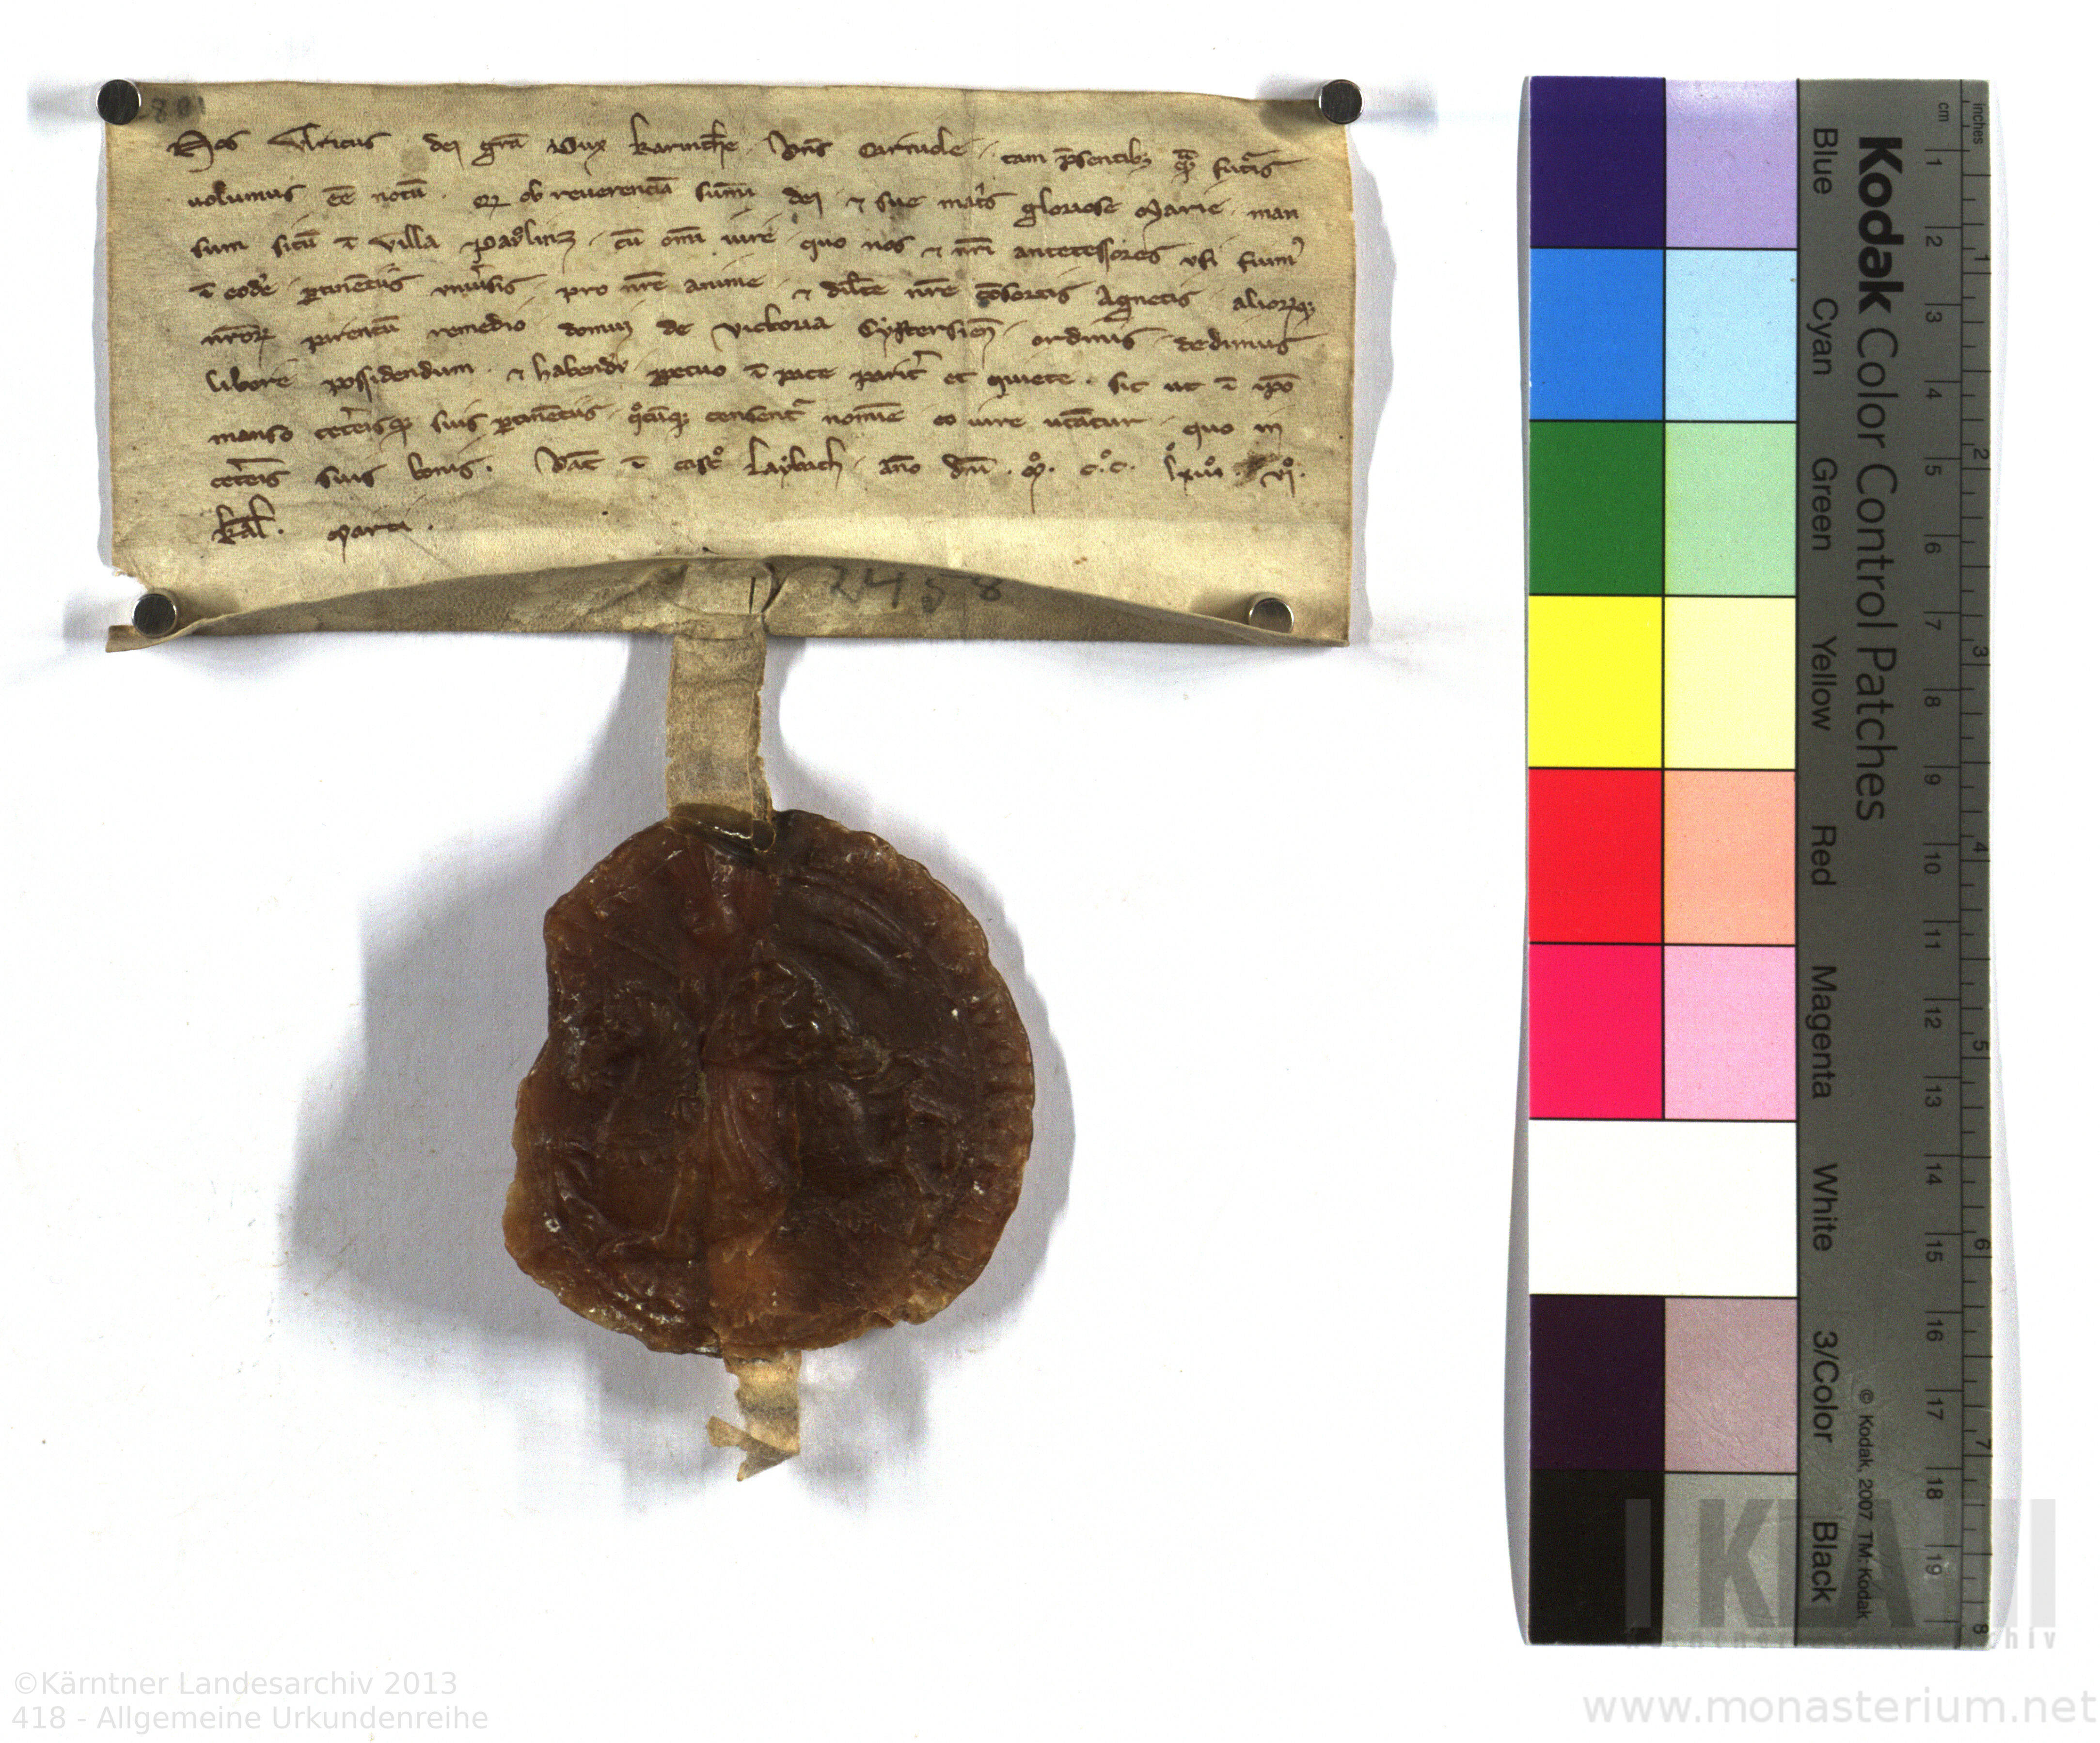 801
Nos Vlricus dei grā Dux Karinthẹ. Dn̄s Carniole. tam p̄sentibꝫ q̄ꝫ futuris
uolumus eē̄ notū. qꝫ ob reuerenciā sūmi dei ⁊ sue mat͛s gloriose Marie. man
sum sitū ī villa Padͦlinz. cū om̄i iure quo nos ⁊ nr̄i antecessores vsi sum͛
ī eodē ꝑtinēciis vniu͛sis. pro nr̄e anime ⁊ dilc̄e nr̄e cōsortis Agnetis aliorꝫqꝫ
nr̄orꝫ parentū remedio domui de victoria Cysterciēn̄. ordinis dedimus
libere possidendum ⁊ habendū ꝑpetuo ī pace parit͛ et quiete. sic ut ī ip̄o
manso cet͛isqꝫ suis ꝑtinēciis q̊cūqꝫ censent͛ nomīe eo iure utātur quo in
cet͛is suis bonis. Dat̄ ī cast̊ Laybach. āno dn̄i. M̊. C̊.C̊. lxiiͦiͦ. vi̊.
kal̄. Marci.
2458
Kodak Color Control Patches
Blue
Cyan
Green
Yellow
Red
Magenta
White
3/Color
Black
© Kodak, 2007 TM: Kodak
cm 1 2 3 4 5 6 7 8 9 10 11 12 13 14 15 16 17 18 19
inches 1 2 3 4 5 6 7 8
KLA
©Kärntner Landesarchiv 2013
418 - Allgemeine Urkundenreihe
www.monasterium.net